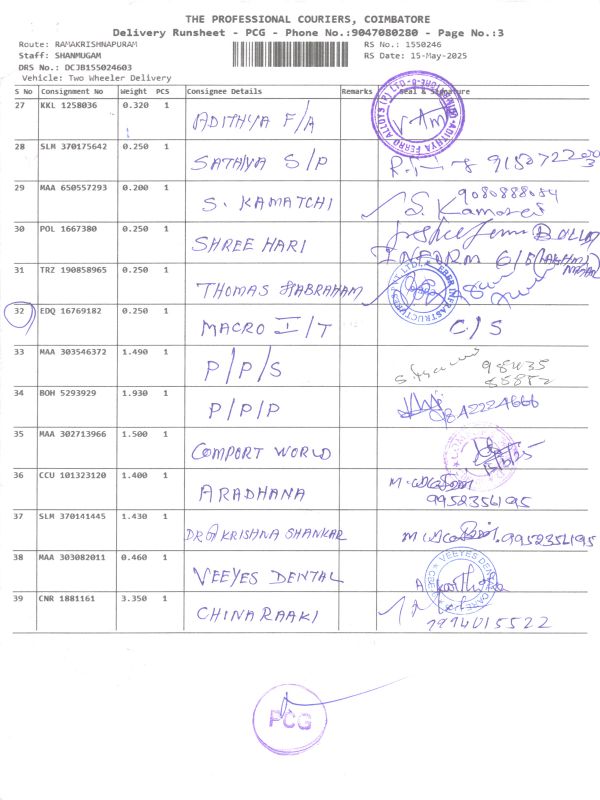 THE PROFESSIONAL COURIERS, COIMBATORE
Delivery Runsheet - PCG - Phone No.:9047080280 - Page No.:3
Route: RAMAKRISHNAPURAM RS No.: 1550246
Staff: SHANMUGAM RS Date: 15-May-2025
DRS No.: DCJB155024603
Vehicle: Two Wheeler Delivery
S No Consignment No Weight PCS Consignee Details Remarks Seal & Signature
27 KKL 1258036 0.320 1 ADITHYA F/A
28 SLM 370175642 0.250 1 SATHYA S/P
29 MAA 650557293 0.200 1 S. KAMATCHI 9080888084
30 POL 1667380 0.250 1 SHREE HARI
31 TRZ 190858965 0.250 1 THOMAS HABRAHAM
32 EDQ 16769182 0.250 1 MACRO I/T C/S
33 MAA 303546372 1.490 1 P/P/S 98435
34 BOH 5293929 1.930 1 P/P/P 9842224666
35 MAA 302713966 1.500 1 COMPORT WORLD
36 CCU 101323120 1.400 1 ARADHANA 9952356195
37 SLM 370141445 1.430 1 DR G KRISHNA SHANKAR 9952356195
38 MAA 303082011 0.460 1 VEEYES DENTAL
VEEYES DENTAL CARE
39 CNR 1881161 3.350 1 CHINARAAKI 7994015522
PCG